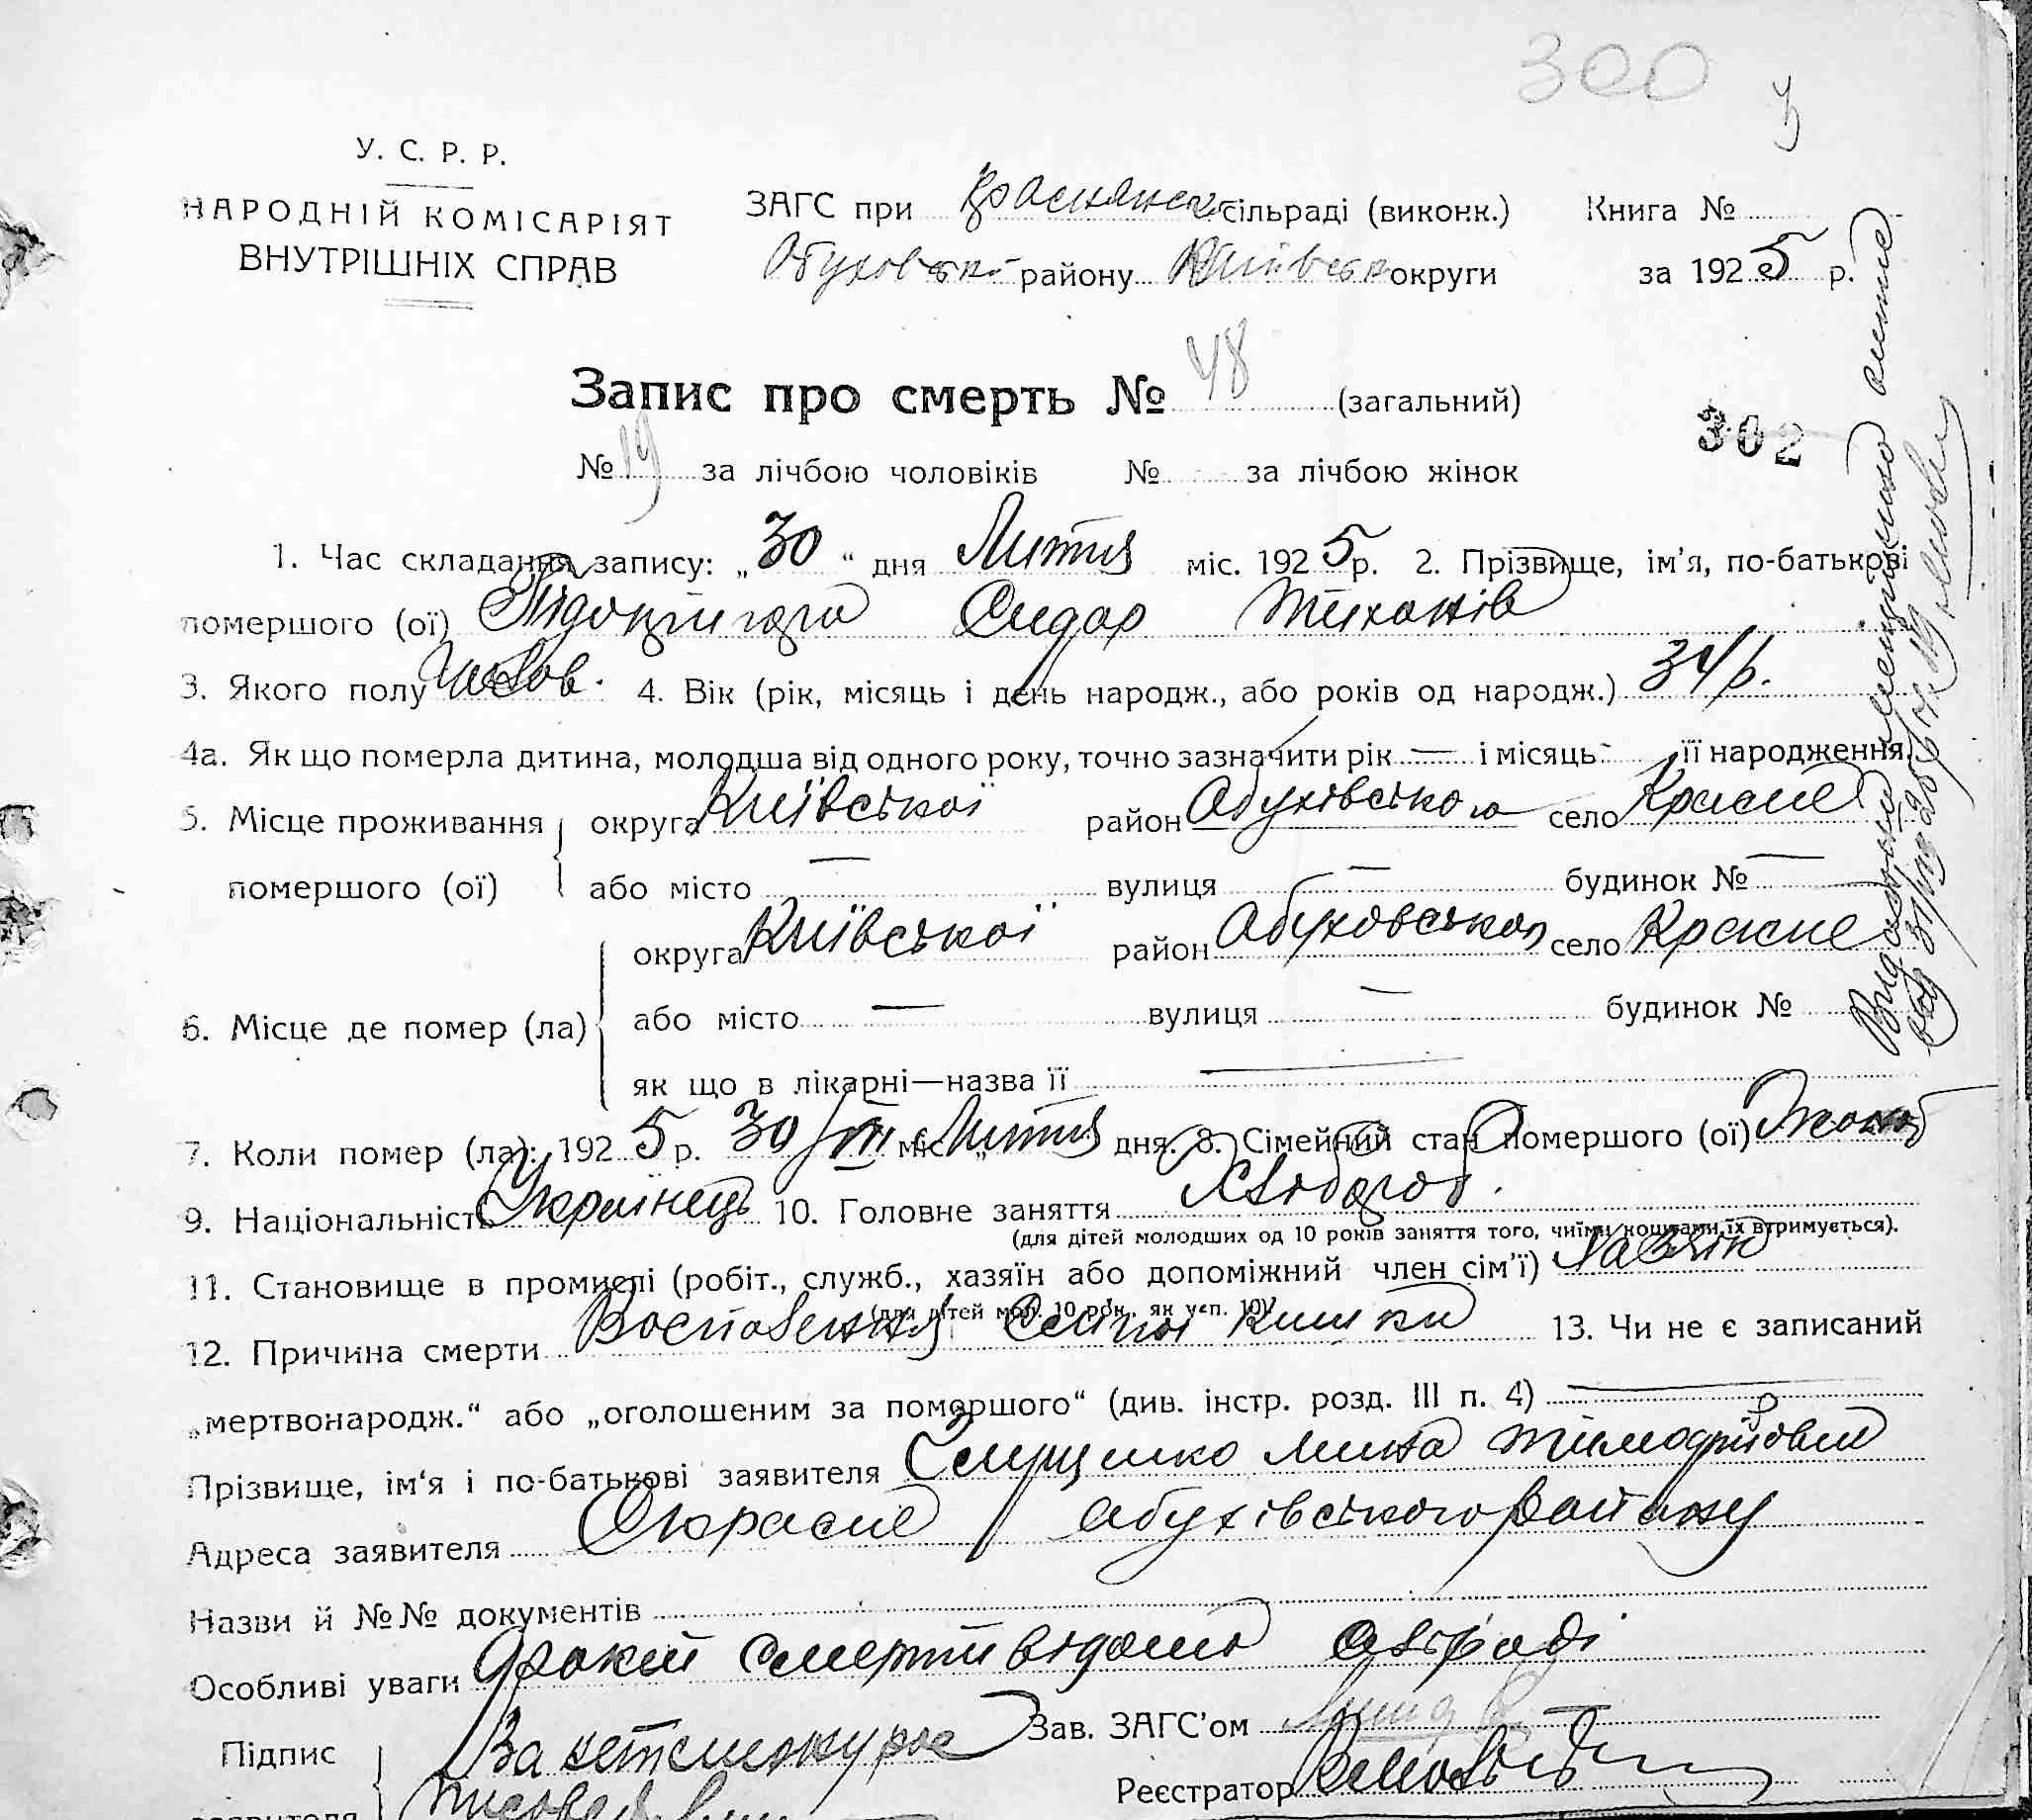 300
У. С. Р. Р.
НАРОДНІЙ КОМІСАРІЯТ
ВНУТРІШНІХ СПРАВ
ЗАГС при Краснянск. сільраді (виконк.) Книга №
Обуховської району Київськ округи за 1925 р.
Запис про смерть № 48 (загальний)
302
№ 19 за лічбою чоловіків № за лічбою жінок
1. Час складання запису: „30“ дня Липня міс. 1925 р. 2. Прізвище, ім'я, по-батькові
помершого (ої) Сидор Тиханів
3. Якого полу Чолов. 4. Вік (рік, місяць і день народж., або років од народж.) 34 р.
4а. Як що померла дитина, молодша від одного року, точно зазначити рік — і місяць - її народження.
5. Місце проживання округа Київської район Обухівського село Красне
помершого (ої) або місто — вулиця — будинок № —
округа Київської район Обуховського село Красне
6. Місце де помер (ла) або місто — вулиця — будинок №
як що в лікарні—назва її —
7. Коли помер (ла): 1925 р. 30/VII міс. „Липня дня. 8. Сімейний стан помершого (ої) Жонат
9. Національність Українець 10. Головне заняття Хлібороб.
(для дітей молодших од 10 років заняття того, чиїми коштами їх втримується).
11. Становище в промислі (робіт., служб., хазяїн або допоміжний член сім'ї) Хазяїн
(для дітей мол. 10 рок. як уєп. 10)
12. Причина смерти Воспалення Сліпої кишки 13. Чи не є записаний
„мертвонародж.“ або „оголошеним за помершого“ (див. інстр. розд. III п. 4) —
Прізвище, ім'я і по-батькові заявителя
Адреса заявителя С Красне Обухівського району
Назви й №№ документів
Особливі уваги Факт смерти відомо сільраді
Підпис За неписьменну Зав. ЗАГС'ом
Реєстратор
заявителя